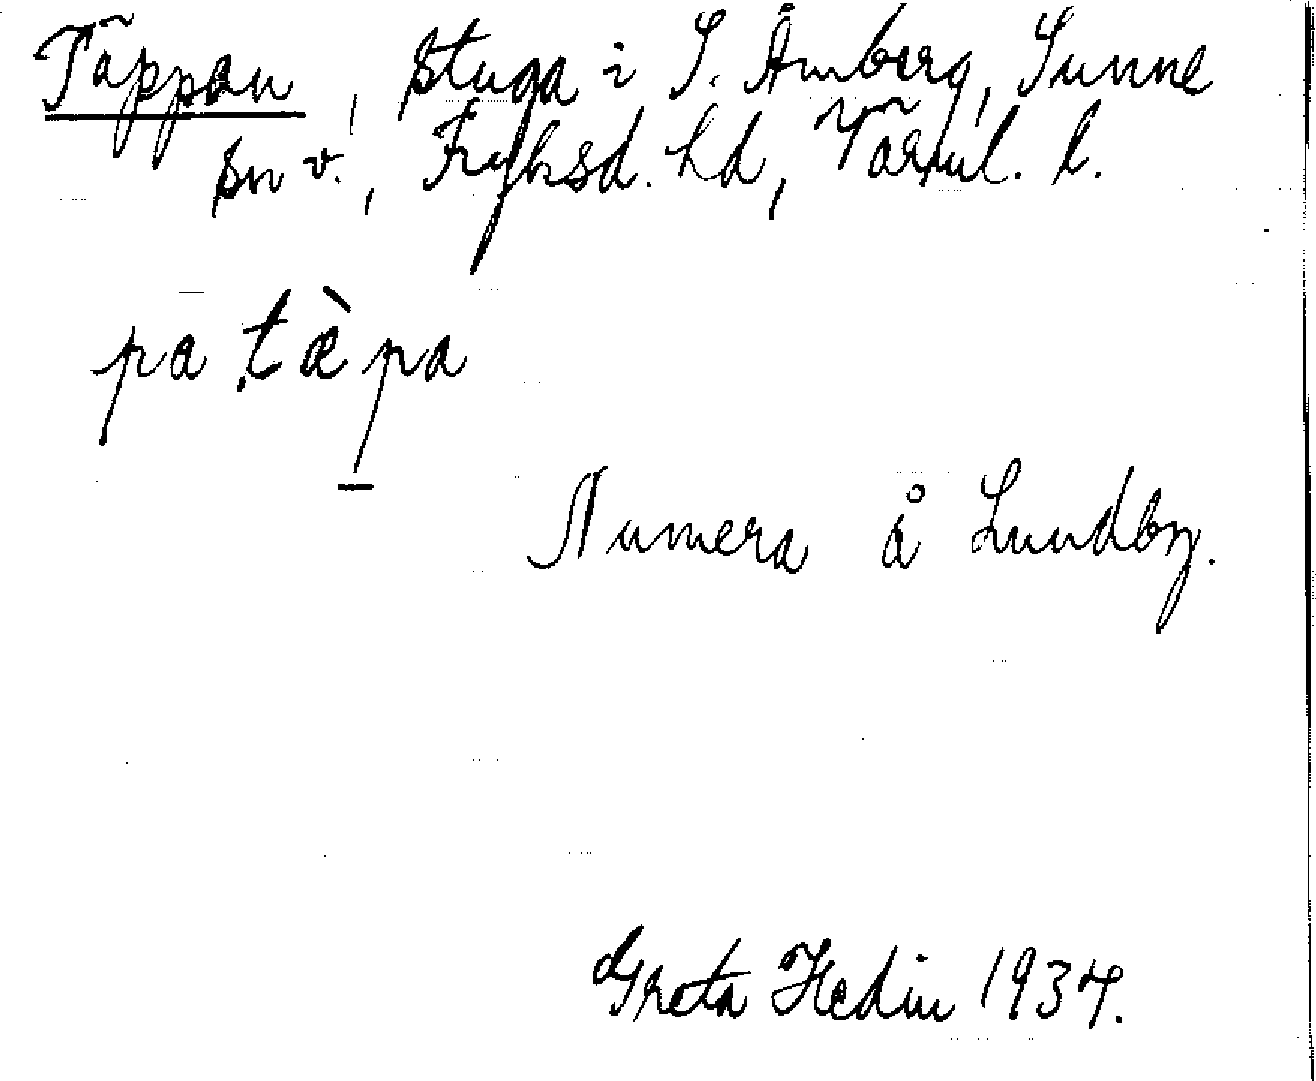 Täppan, stuga i S. Åmberg, Sunne
sn v., Fryksd. hd, Värml. l.
pa ˌtæ̀pa
Numera å Lundby.
Greta Hedin 1934.